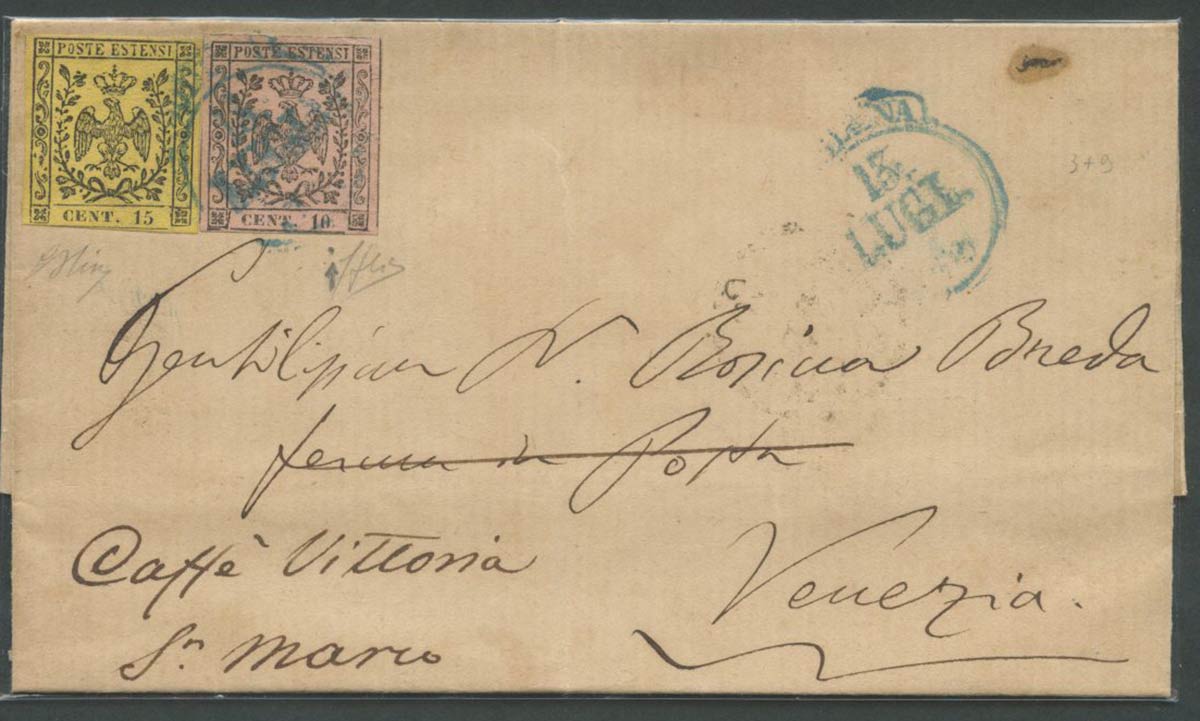 POSTE ESTENSI
CENT. 15
POSTE ESTENSI
CENT. 10
13
LUGL.
3+9
Rosina Breda
ferma in Posta
Caffè Vittoria
Sn. Marco
Venezia.